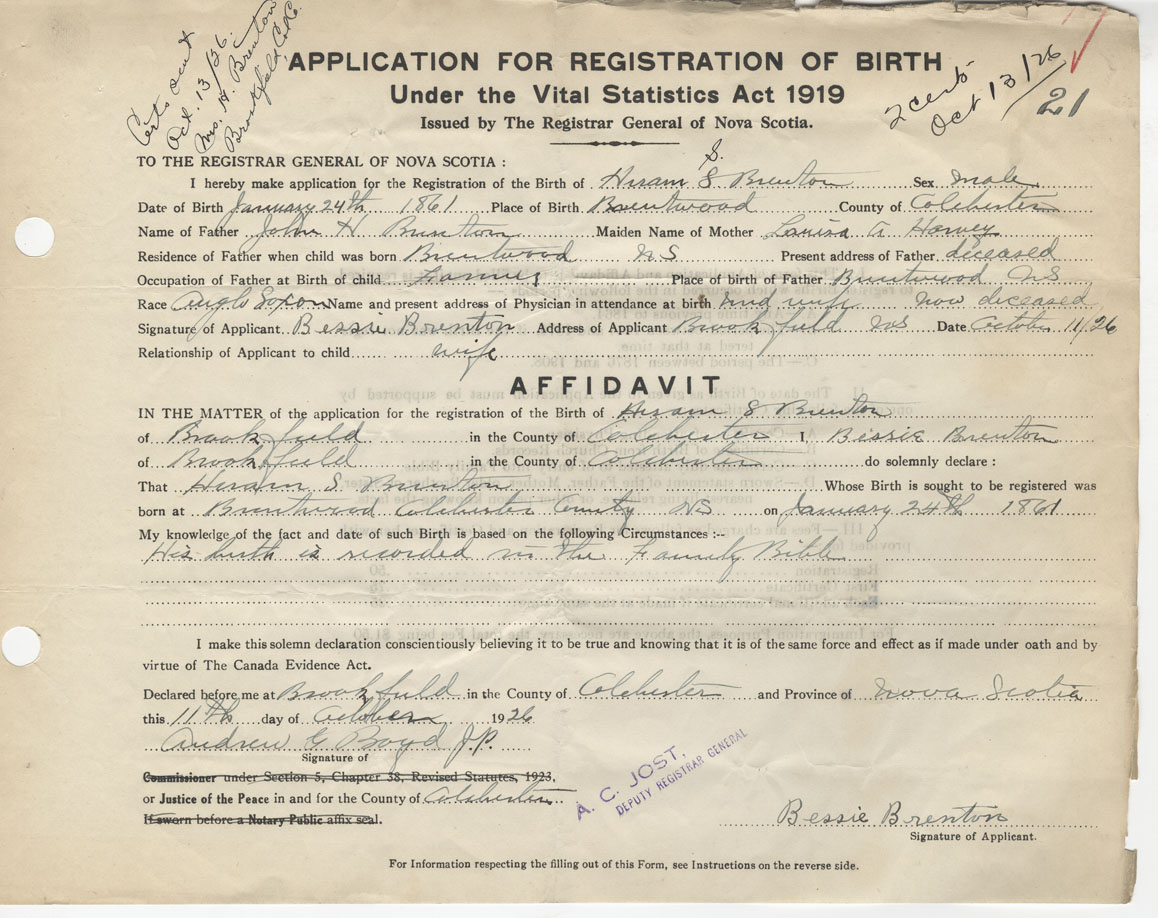 Certs sent
Oct. 13/26.
Mrs. H. Brenton
Brookfield Col. Co.
APPLICATION FOR REGISTRATION OF BIRTH
Under the Vital Statistics Act 1919
Issued by The Registrar General of Nova Scotia.
2 certs
Oct 13/26
21
TO THE REGISTRAR GENERAL OF NOVA SCOTIA :
S.
I hereby make application for the Registration of the Birth of Hiram S Brenton Sex Male
Date of Birth January 24th 1861 Place of Birth Brentwood County of Colchester
Name of Father John H Brenton Maiden Name of Mother Louisa A Harvey
Residence of Father when child was born Brentwood NS Present address of Father deceased
Occupation of Father at Birth of child Farmer Place of birth of Father Brentwood NS
Race Anglo Soxon Name and present address of Physician in attendance at birth mid wife now deceased
Signature of Applicant Bessie Brenton Address of Applicant Brookfield NS Date October 11/26
Relationship of Applicant to child wife
AFFIDAVIT
IN THE MATTER of the application for the registration of the Birth of Hiram S Brenton
of Brookfield in the County of Colchester I, Bessie Brenton
of Brookfield in the County of Colchester do solemnly declare :
That Hiram S. Brenton Whose Birth is sought to be registered was
born at Brentwood Colchester County NS on January 24th 1861
My knowledge of the fact and date of such Birth is based on the following Circumstances :--
His birth is recorded in the Family Bible
I make this solemn declaration conscientiously believing it to be true and knowing that it is of the same force and effect as if made under oath and by
virtue of The Canada Evidence Act.
Declared before me at Brookfield in the County of Colchester and Province of Nova Scotia
this 11th day of October 1926
Andrew G Boyd J.P.
Signature of
Commissioner under Section 5, Chapter 38, Revised Statutes, 1923,
or Justice of the Peace in and for the County of Colchester
If sworn before a Notary Public affix seal.
A. C. JOST,
DEPUTY REGISTRAR GENERAL
Bessie Brenton
Signature of Applicant.
For Information respecting the filling out of this Form, see Instructions on the reverse side.